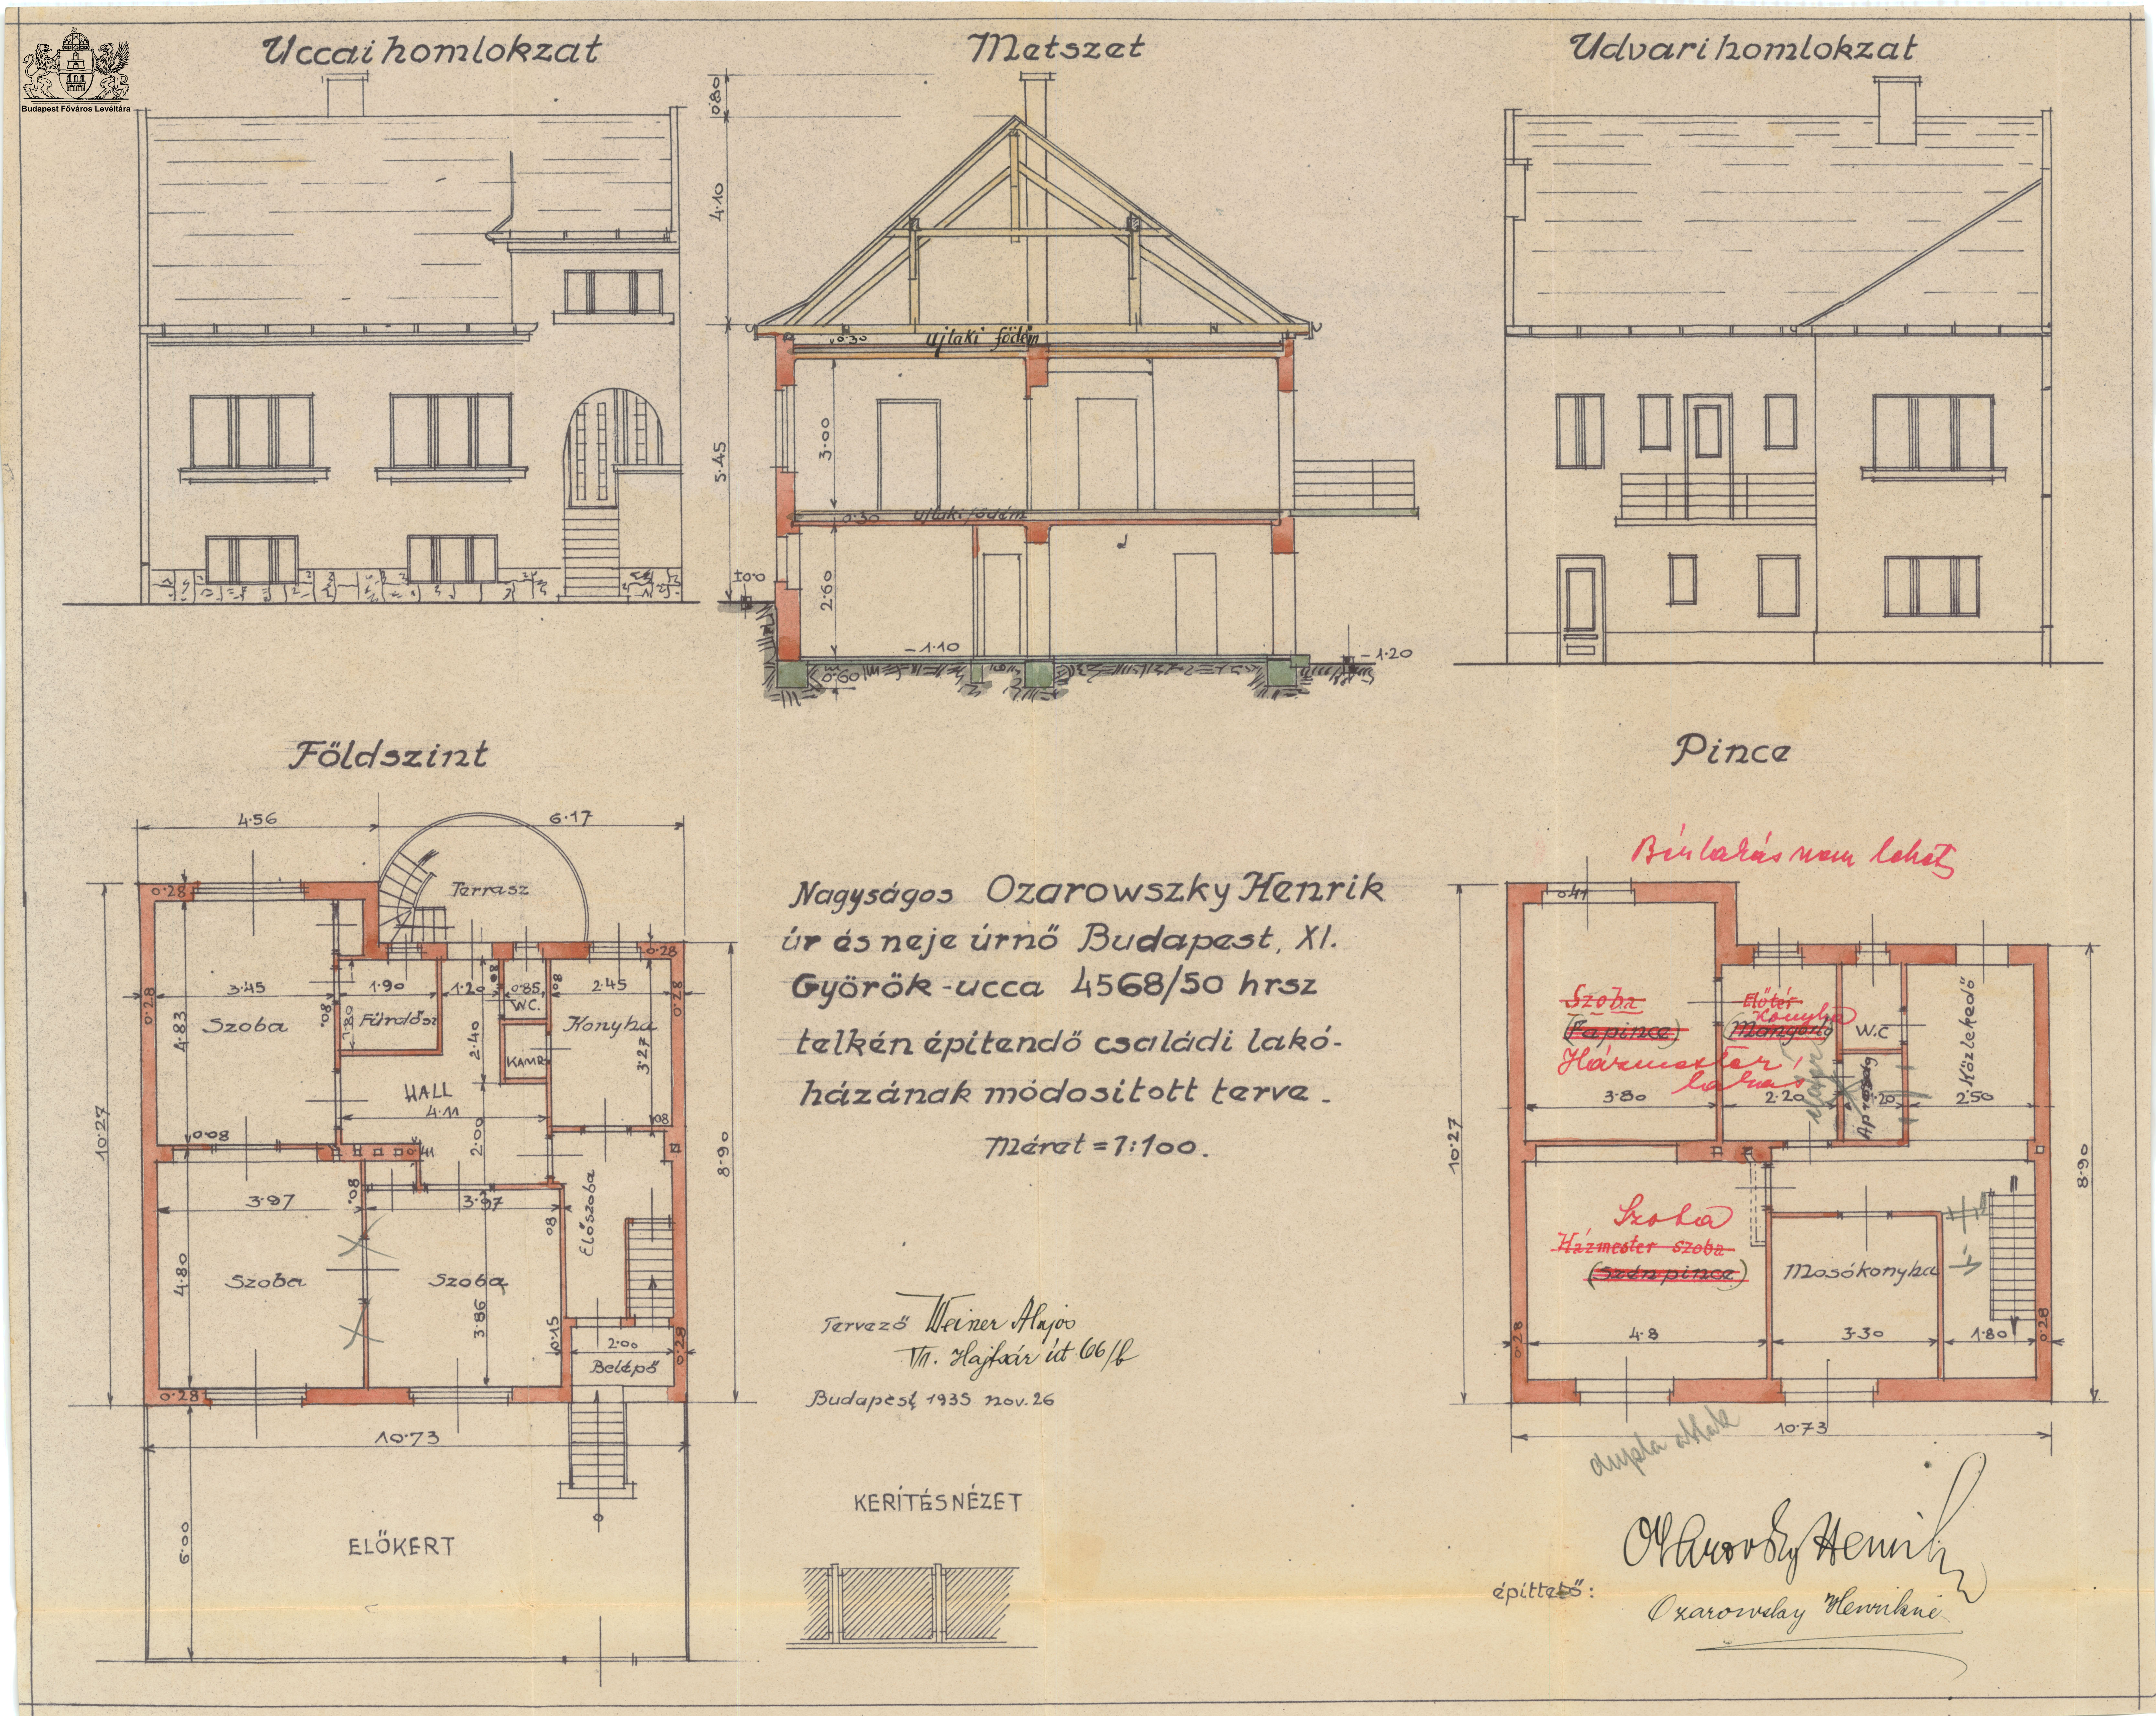 Budapest Főváros Levéltára
Uccai homlokzat
Metszet
Udvari homlokzat
0·80
4·10
5·45
0·30 ujlaki födém
3·00
0·30 ujlaki födém
2·60
±0·0
-1·10
-1·20
0·60
Földszint
4·56
6·17
Terrasz
0·28
0·28
3·45
1·90
1·20
0·85
2·45
0·28
0·28
08
08
08
Szoba
4·83
1·80
Fürdősz
W.C.
Konyha
2·40
KAMR.
3·27
HALL
4·11
2·00
08
0·08
41
10·27
8·90
3·97
08
3·97
08
Előszoba
4·80
Szoba
Szoba
3·86
0·15
2·00
0·28
Belépő
0·28
10·73
6·00
ELŐKERT
Nagyságos Ozarowszky Henrik
úr és neje úrnő Budapest, XI.
Györök-ucca 4568/50 hrsz
telkén épitendő családi lakó-
házának módositott terve.
Méret = 1:100.
Tervező Weiner Alajos
VII. Hajtsár út 66/b
Budapest, 1935 nov. 26
KERÍTÉSNÉZET
Pince
Bérlakás nem lehet
0·41
Szoba
(Fapince)
Házmester
lakás
Előtér
Konyha
(Mángorló)
W.C
Közlekedő
3·80
2·20
1·20
2·50
10·27
8·90
Szoba
Házmester szoba
(Szén pince)
Mosókonyha
0·28
4·8
3·30
1·80
0·28
dupla ablak
10·73
Ozarovszky Henrik
épittető:
Ozarowszky Henrikné